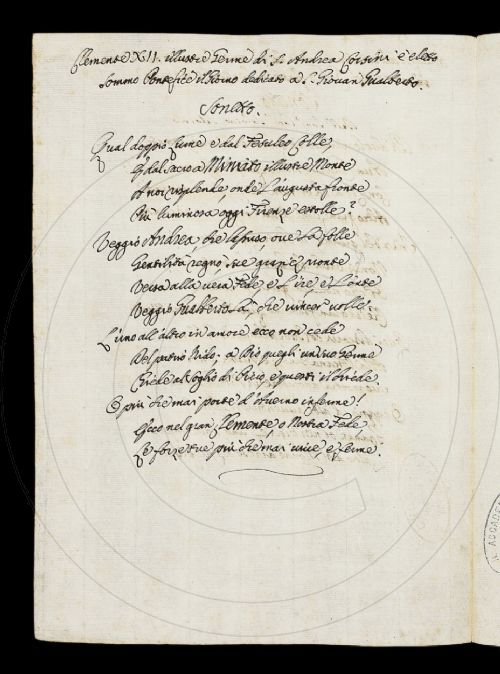 Clemente XII. illustre Germe di S. Andrea Corsini è eletto
Sommo Pontefice il Giorno dedicato a S. Giovan Gualberto.
Sonetto.
Qual doppio lume e dal Fesuleo Colle,
E dal sacro a Miniato illustre Monte
A noi risplende, onde l'augusta fronte
Più luminosa oggi Firenze estolle?
Veggio Andrea che lassuso, ove la folle
Gentilità regnò, sue pronte
Veggio Gualberto là, che vincer volle.
L'uno all'altro in amore ecco non cede
Del patrio Nido; a Dio quegli un suo Germe
Chiede al Soglio di Piero, e questi il chiede.
O più che mai porte d'Averno inferme!
Ecco nel gran Clemente, o Nostra Fede,
Le forze tue più che mai unite, e ferme.
ACCADE